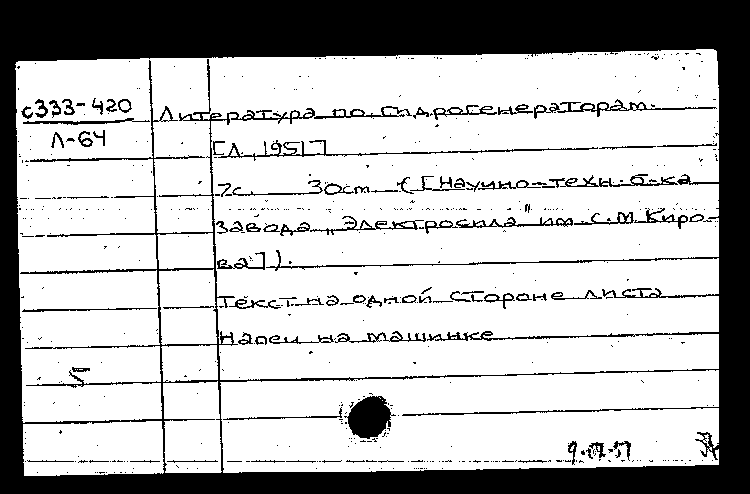 с333-420
Л-64
Литература по гидрогенераторам.
[Л., 1951]
7с. 30 cm. ([Научно-техн. б-ка
завода „Электросила" им. С.М. Киро-
ва]).
Текст на одной стороне листа
Напеч на машинке
5